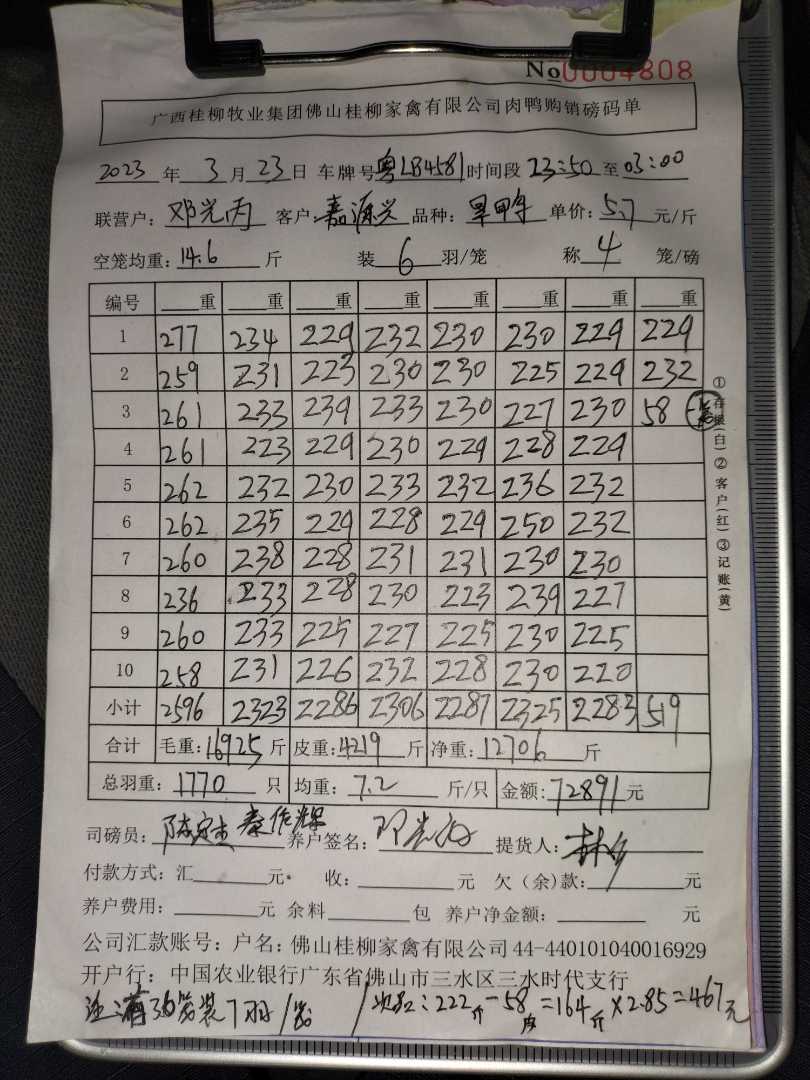 No0004808
广西桂柳牧业集团佛山桂柳家禽有限公司肉鸭购销磅码单
2023 年 3 月 23 日 车牌号 粤LB4581 时间段 23:50 至 03:00
联营户: 邓光丙 客户: 嘉源兴 品种: 单价: 5.7 元/斤
空笼均重: 14.6 斤 装 6 羽/笼 称 4 笼/磅
编号 重 重 重 重 重 重 重 重
1 277 234 229 232 230 230 229 229
2 259 231 223 230 230 225 229 232
3 261 233 239 233 230 227 230 58
4 261 223 229 230 229 228 229
5 262 232 230 233 232 236 232
6 262 235 229 228 229 250 232
7 260 238 228 231 231 230 230
8 236 233 228 230 223 239 227
9 260 233 225 227 225 230 225
10 258 231 226 232 228 230 220
小计 2596 2323 2286 2306 2287 2325 2283 519
合计 毛重: 16925 斤 皮重: 4219 斤 净重: 12706 斤
总羽重: 1770 只 均重: 7.2 斤/只 金额: 72891 元
司磅员: 陈定杰 秦作辉 养户签名: 提货人:
付款方式: 汇 元 收: 元 欠(余)款: 元
养户费用: 元 余料 包 养户净金额: 元
公司汇款账号: 户名: 佛山桂柳家禽有限公司 44-440101040016929
开户行: 中国农业银行广东省佛山市三水区三水时代支行
注: 满36笼装7羽/笼 222斤-58 =164斤×2.85=467元
①存根(白) ②客户(红) ③记账(黄)